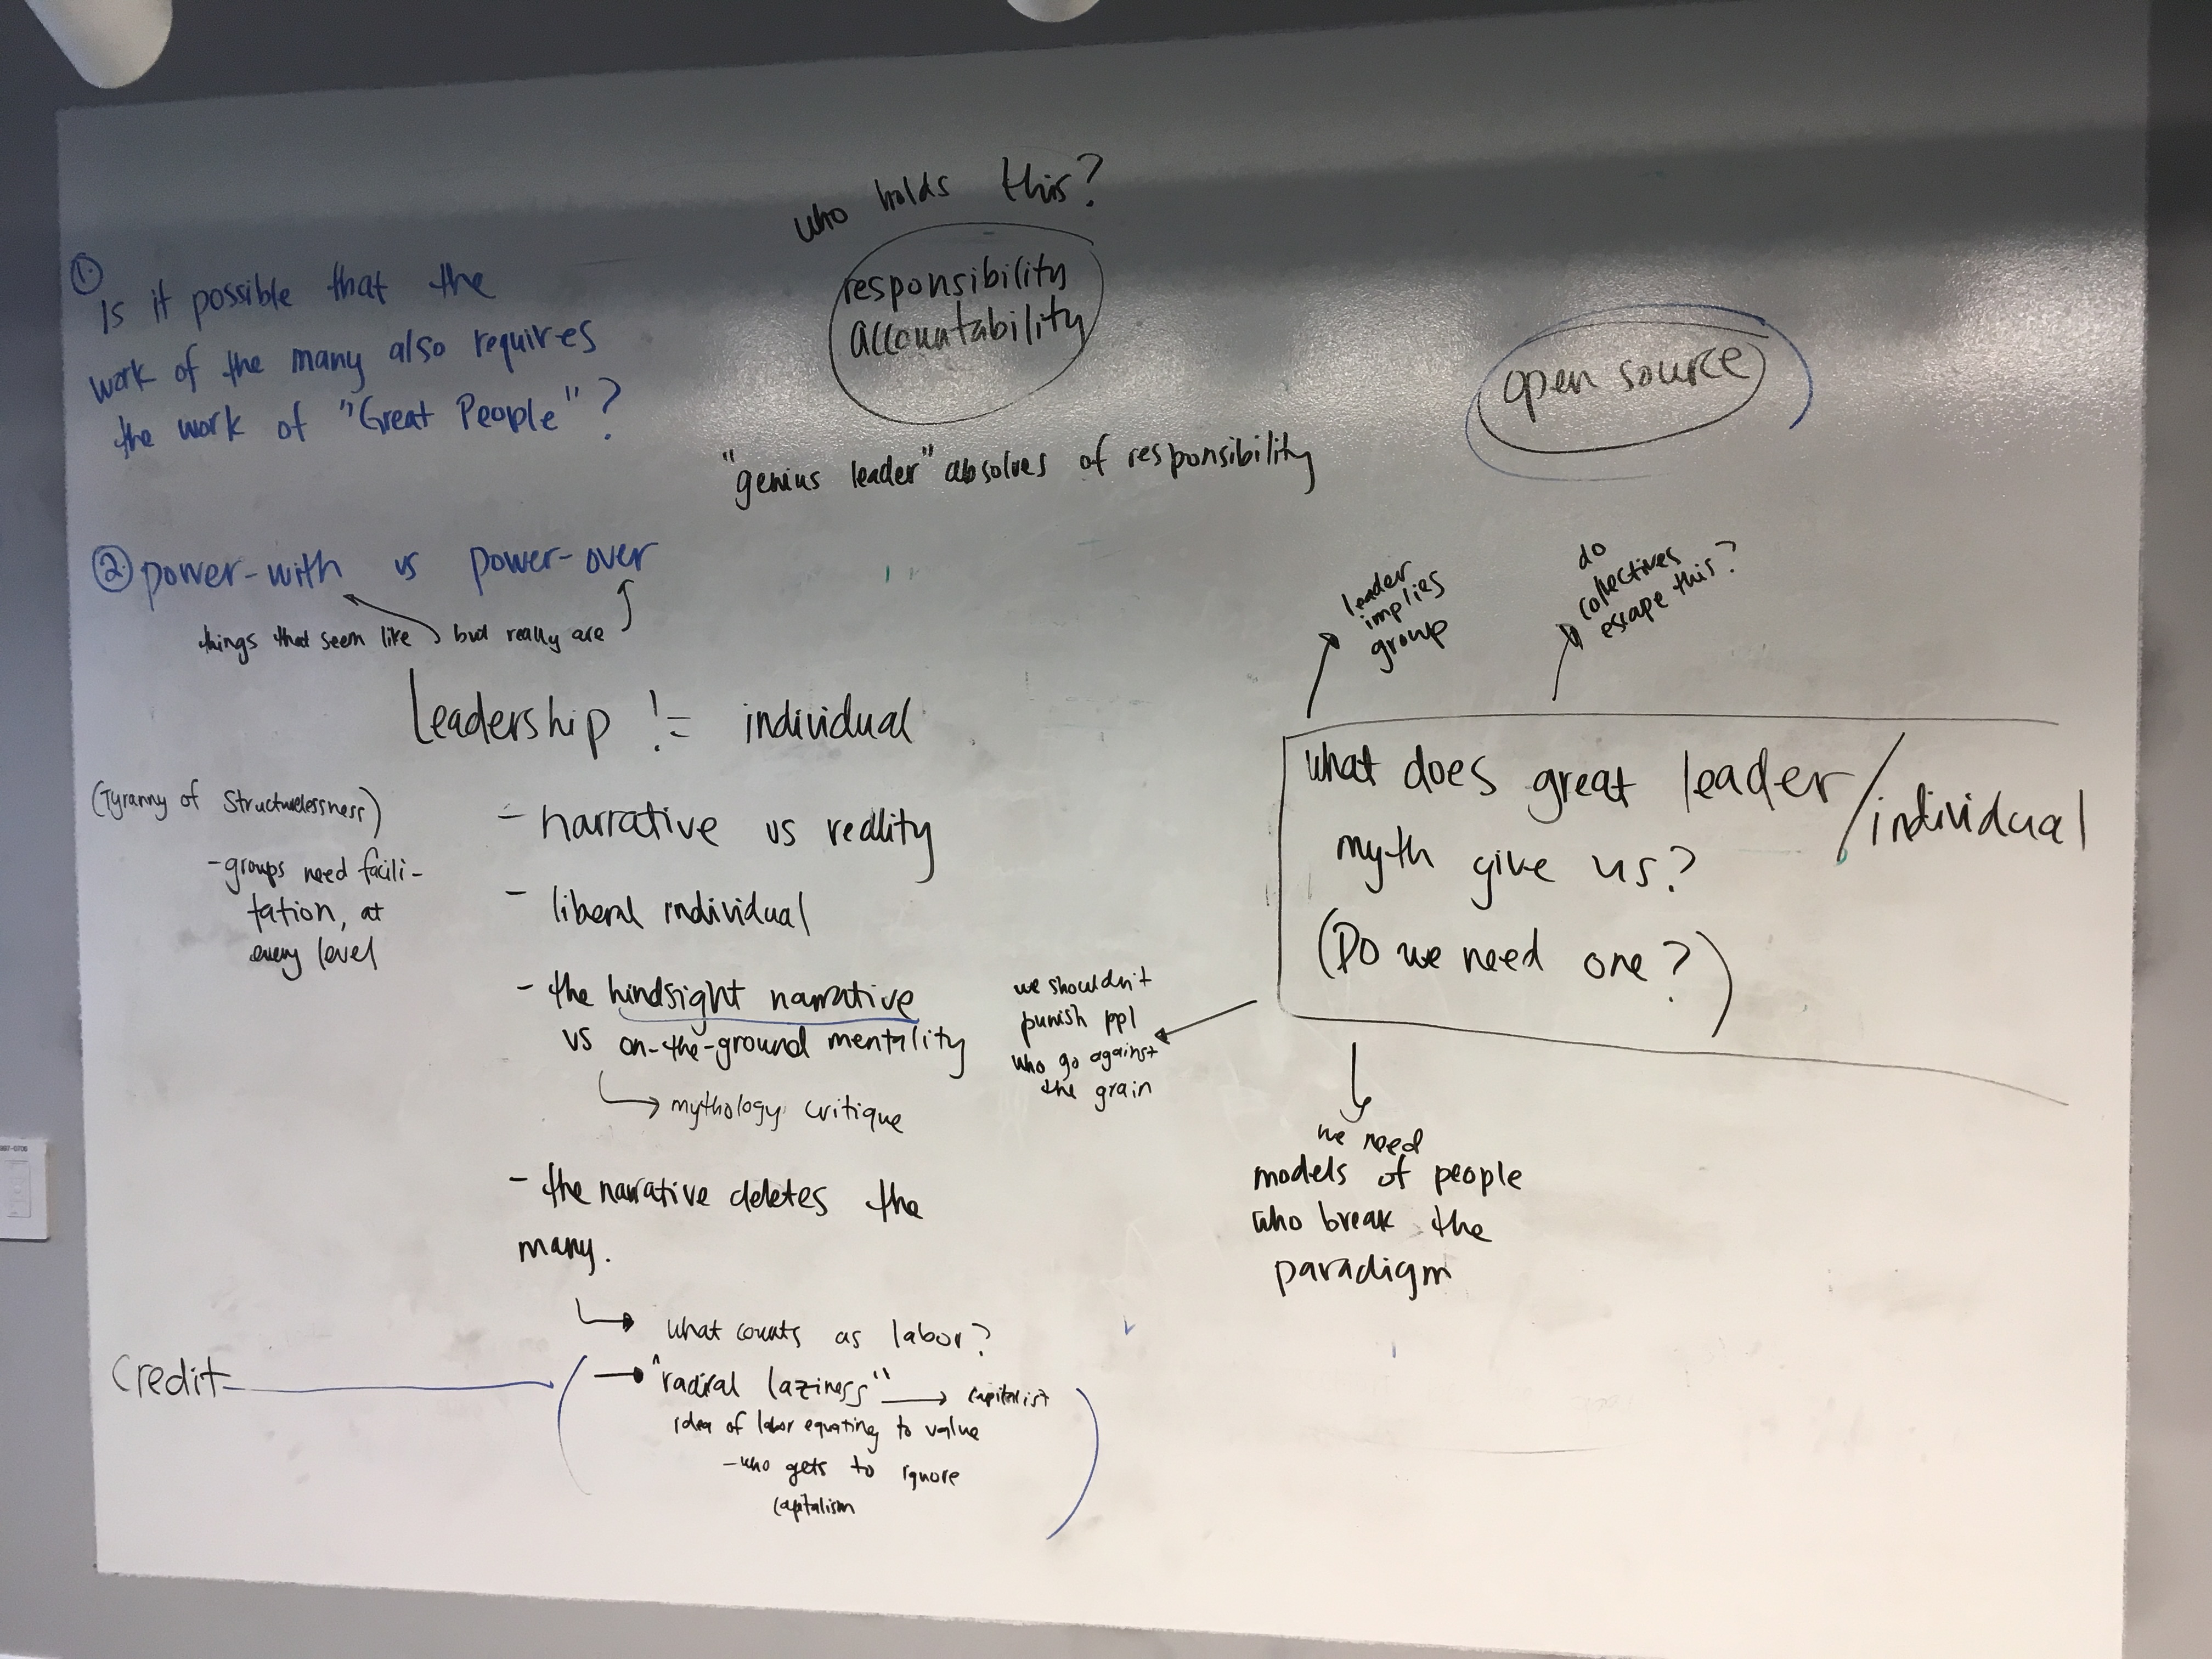 who holds this?
responsibility
accountability
"genius leader" absolves of responsibility
open source
①
Is it possible that the
work of the many also requires
the work of "Great People"?
② power-with vs power-over
things that seem like but really are
Leadership != individual
(Tyranny of Structurelessness)
- groups need facili-
tation, at
every level
- narrative vs reality
- liberal individual
- the hindsight narrative
vs on-the-ground mentality
mythology critique
- the narrative deletes the
many.
what counts as labor?
Credit
"radical laziness" → capitalist
idea of labor equating to value
- who gets to ignore
capitalism
leader
implies
group
do
collectives
escape this?
what does great leader/individual
myth give us?
(Do we need one?)
we shouldn't
punish ppl
who go against
the grain
we need
models of people
who break the
paradigm